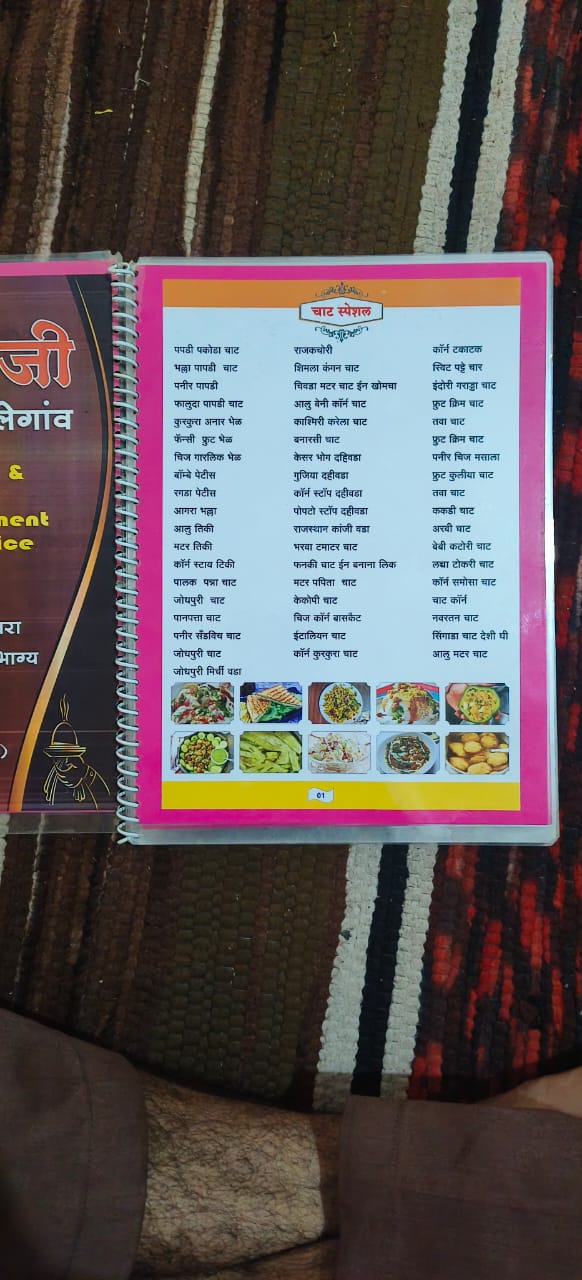 जी
लेगांव
&
ment
ice
रा
भाग्य
चाट स्पेशल
पपडी पकोडा चाट
भल्ला पापडी चाट
पनीर पापडी
फालुदा पापडी चाट
कुरकुरा अनार भेळ
फॅन्सी फ्रुट भेळ
चिज गारलिक भेळ
बॉम्बे पेटीस
रगडा पेटीस
आगरा भल्ला
आलु तिकी
मटर तिकी
कॉर्न स्टाव टिकी
पालक पन्ना चाट
जोधपुरी चाट
पानपत्ता चाट
पनीर सँडविच चाट
जोधपुरी चाट
जोधपुरी मिर्ची वडा
राजकचोरी
शिमला कंगन चाट
चिवडा मटर चाट ईन खोमचा
आलु बेनी कॉर्न चाट
काश्मिरी करेला चाट
बनारसी चाट
केसर भोग दहिवडा
गुजिया दहीवडा
कॉर्न स्टॉप दहीवडा
पोपटो स्टॉप दहीवडा
राजस्थान कांजी वडा
भरवा टमाटर चाट
फनकी चाट ईन बनाना लिक
मटर पपिता चाट
केकोपी चाट
चिज कॉर्न बासकैट
ईटालियन चाट
कॉर्न कुरकुरा चाट
कॉर्न टकाटक
स्विट पट्टे चार
इंदोरी गराड्डा चाट
फ्रुट क्रिम चाट
तवा चाट
फ्रुट क्रिम चाट
पनीर चिज मसाला
फ्रुट कुलीया चाट
तवा चाट
ककडी चाट
अरवी चाट
बेबी कटोरी चाट
लच्छा टोकरी चाट
कॉर्न समोसा चाट
चाट कॉर्न
नवरतन चाट
सिंगाडा चाट देशी घी
आलु मटर चाट
01